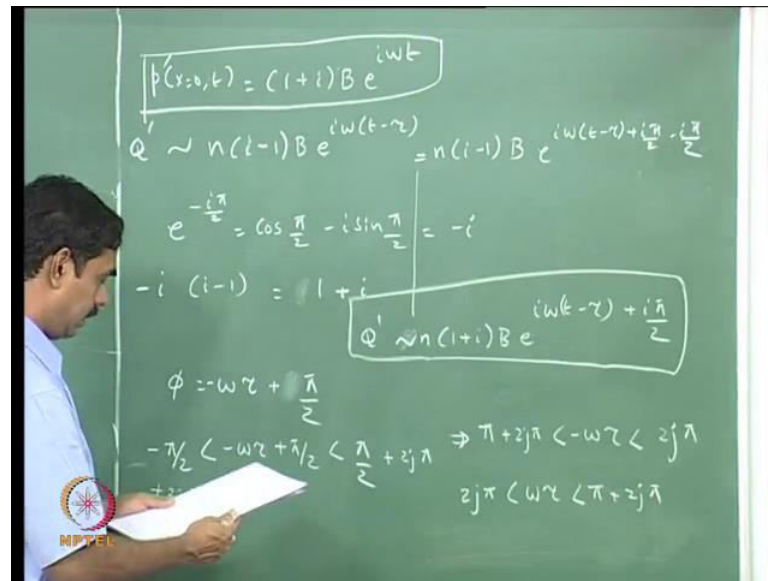 p'(x=0,t) = (1+i) B e^{iωt}
Q' ~ n(i-1) B e^{iω(t-τ)} = n(i-1) B e^{iω(t-τ)+iπ/2-iπ/2}
e^{-iπ/2} = cos π/2 - i sin π/2 = -i
-i (i-1) = 1 + i
Q' ~ n(1+i) B e^{iω(t-τ) + iπ/2}
φ = -ωτ + π/2
-π/2 < -ωτ + π/2 < π/2 + 2jπ ⇒ π + 2jπ < -ωτ < 2jπ
2jπ < ωτ < π + 2jπ
NPTEL